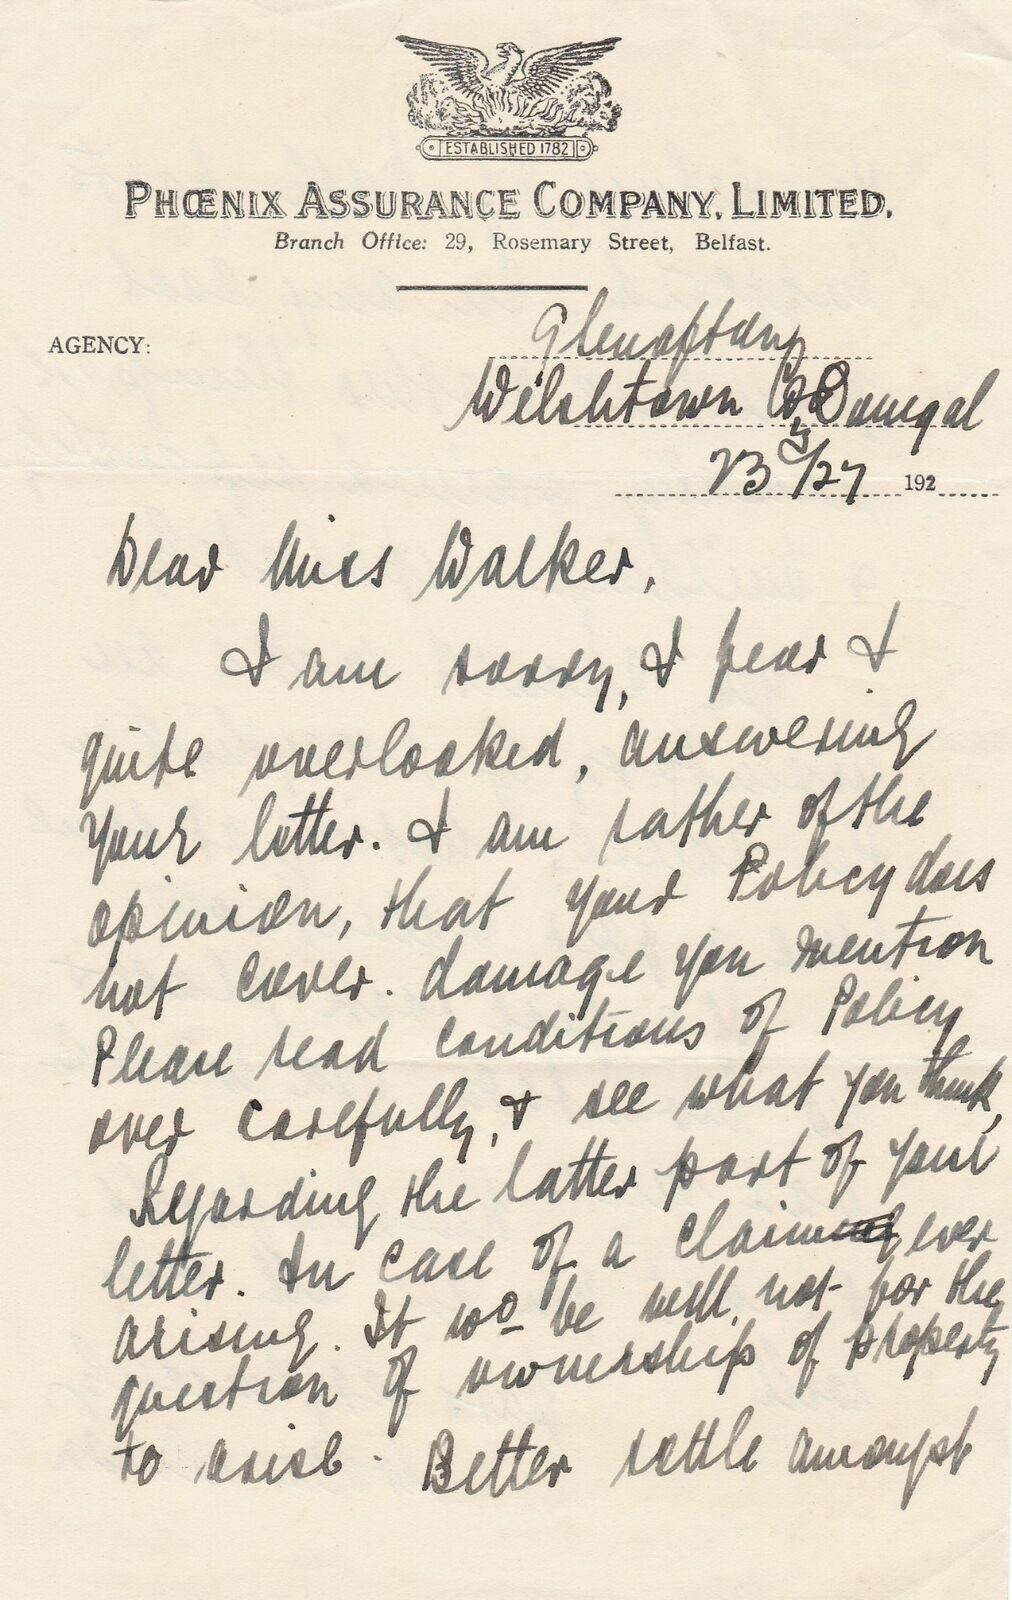 ESTABLISHED 1782
PHŒNIX ASSURANCE COMPANY, LIMITED.
Branch Office: 29, Rosemary Street, Belfast.
AGENCY:
Wilshtown Co Donegal
23 /27 192
Dear Miss Walker,
I am sorry, I fear I
quite overlooked, answering
your letter. I am rather of the
opinion, that your Policy does
not cover. damage you mention
Please read conditions of Policy
over carefully, & see what you think,
Regarding the latter part of your
letter. In case of a claim ever
arising. It wd be well, not for the
question of ownership of property
to arise. Better settle amongst